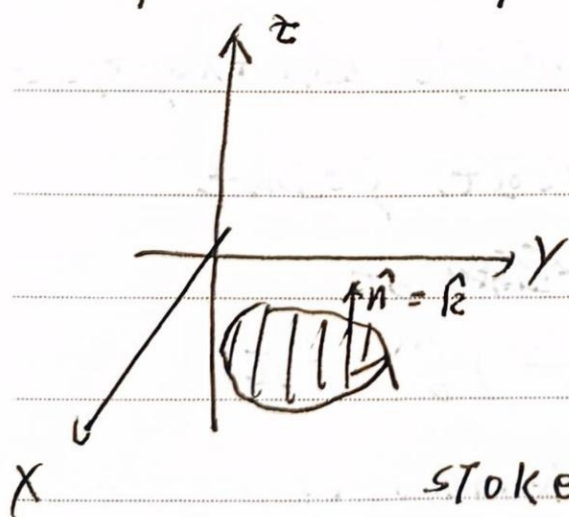 z
Y
n̂ = k̂
X
STOKE